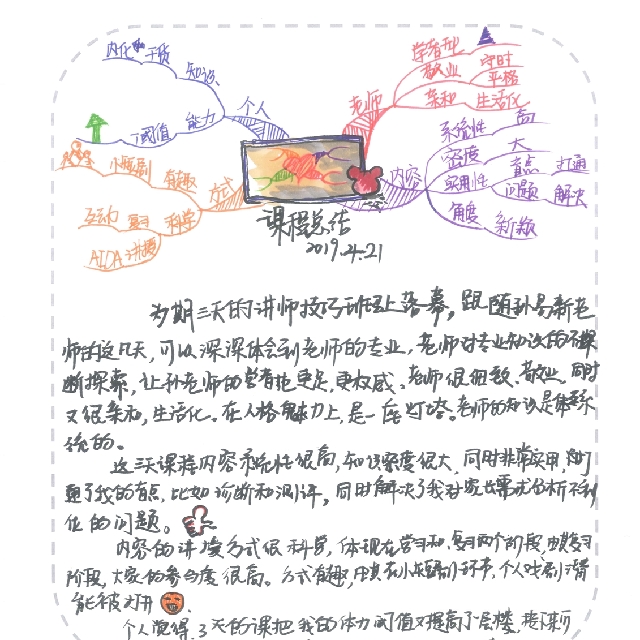 内化 干货
知识
个人
能力
阈值
小短剧
有趣
方式
互动 复习
科学
AIDA 讲授
学者型
敬业 守时
严格
老师
亲和 生活化
系统性 高
密度 大
内容
实用性 盲点 打通
问题 解决
角度 新颖
课程总结
2019.4.21
为期三天的讲师技巧班马上落幕，跟随孙易新老
师的这几天，可以深深体会到老师的专业，老师对专业知识的不
断探索，让孙老师的学者范更足，更权威。老师很细致、敬业，同时
又很亲和，生活化。在人格魅力上，是一座灯塔。老师的知识是体系
统的。
这三天课程内容系统性很高，知识密度很大，同时非常实用，打
通了我的盲点，比如诊断和测评，同时解决了我对家长需求分析不到
位的问题。
内容的讲授方式很科学，体现在学习和复习两个阶段，
阶段，大家的参与度很高。方式有趣，小短剧环节，个人戏剧潜
能被打开
个人觉得，3天的课把我的体力阈值又提高了一层楼，接下来